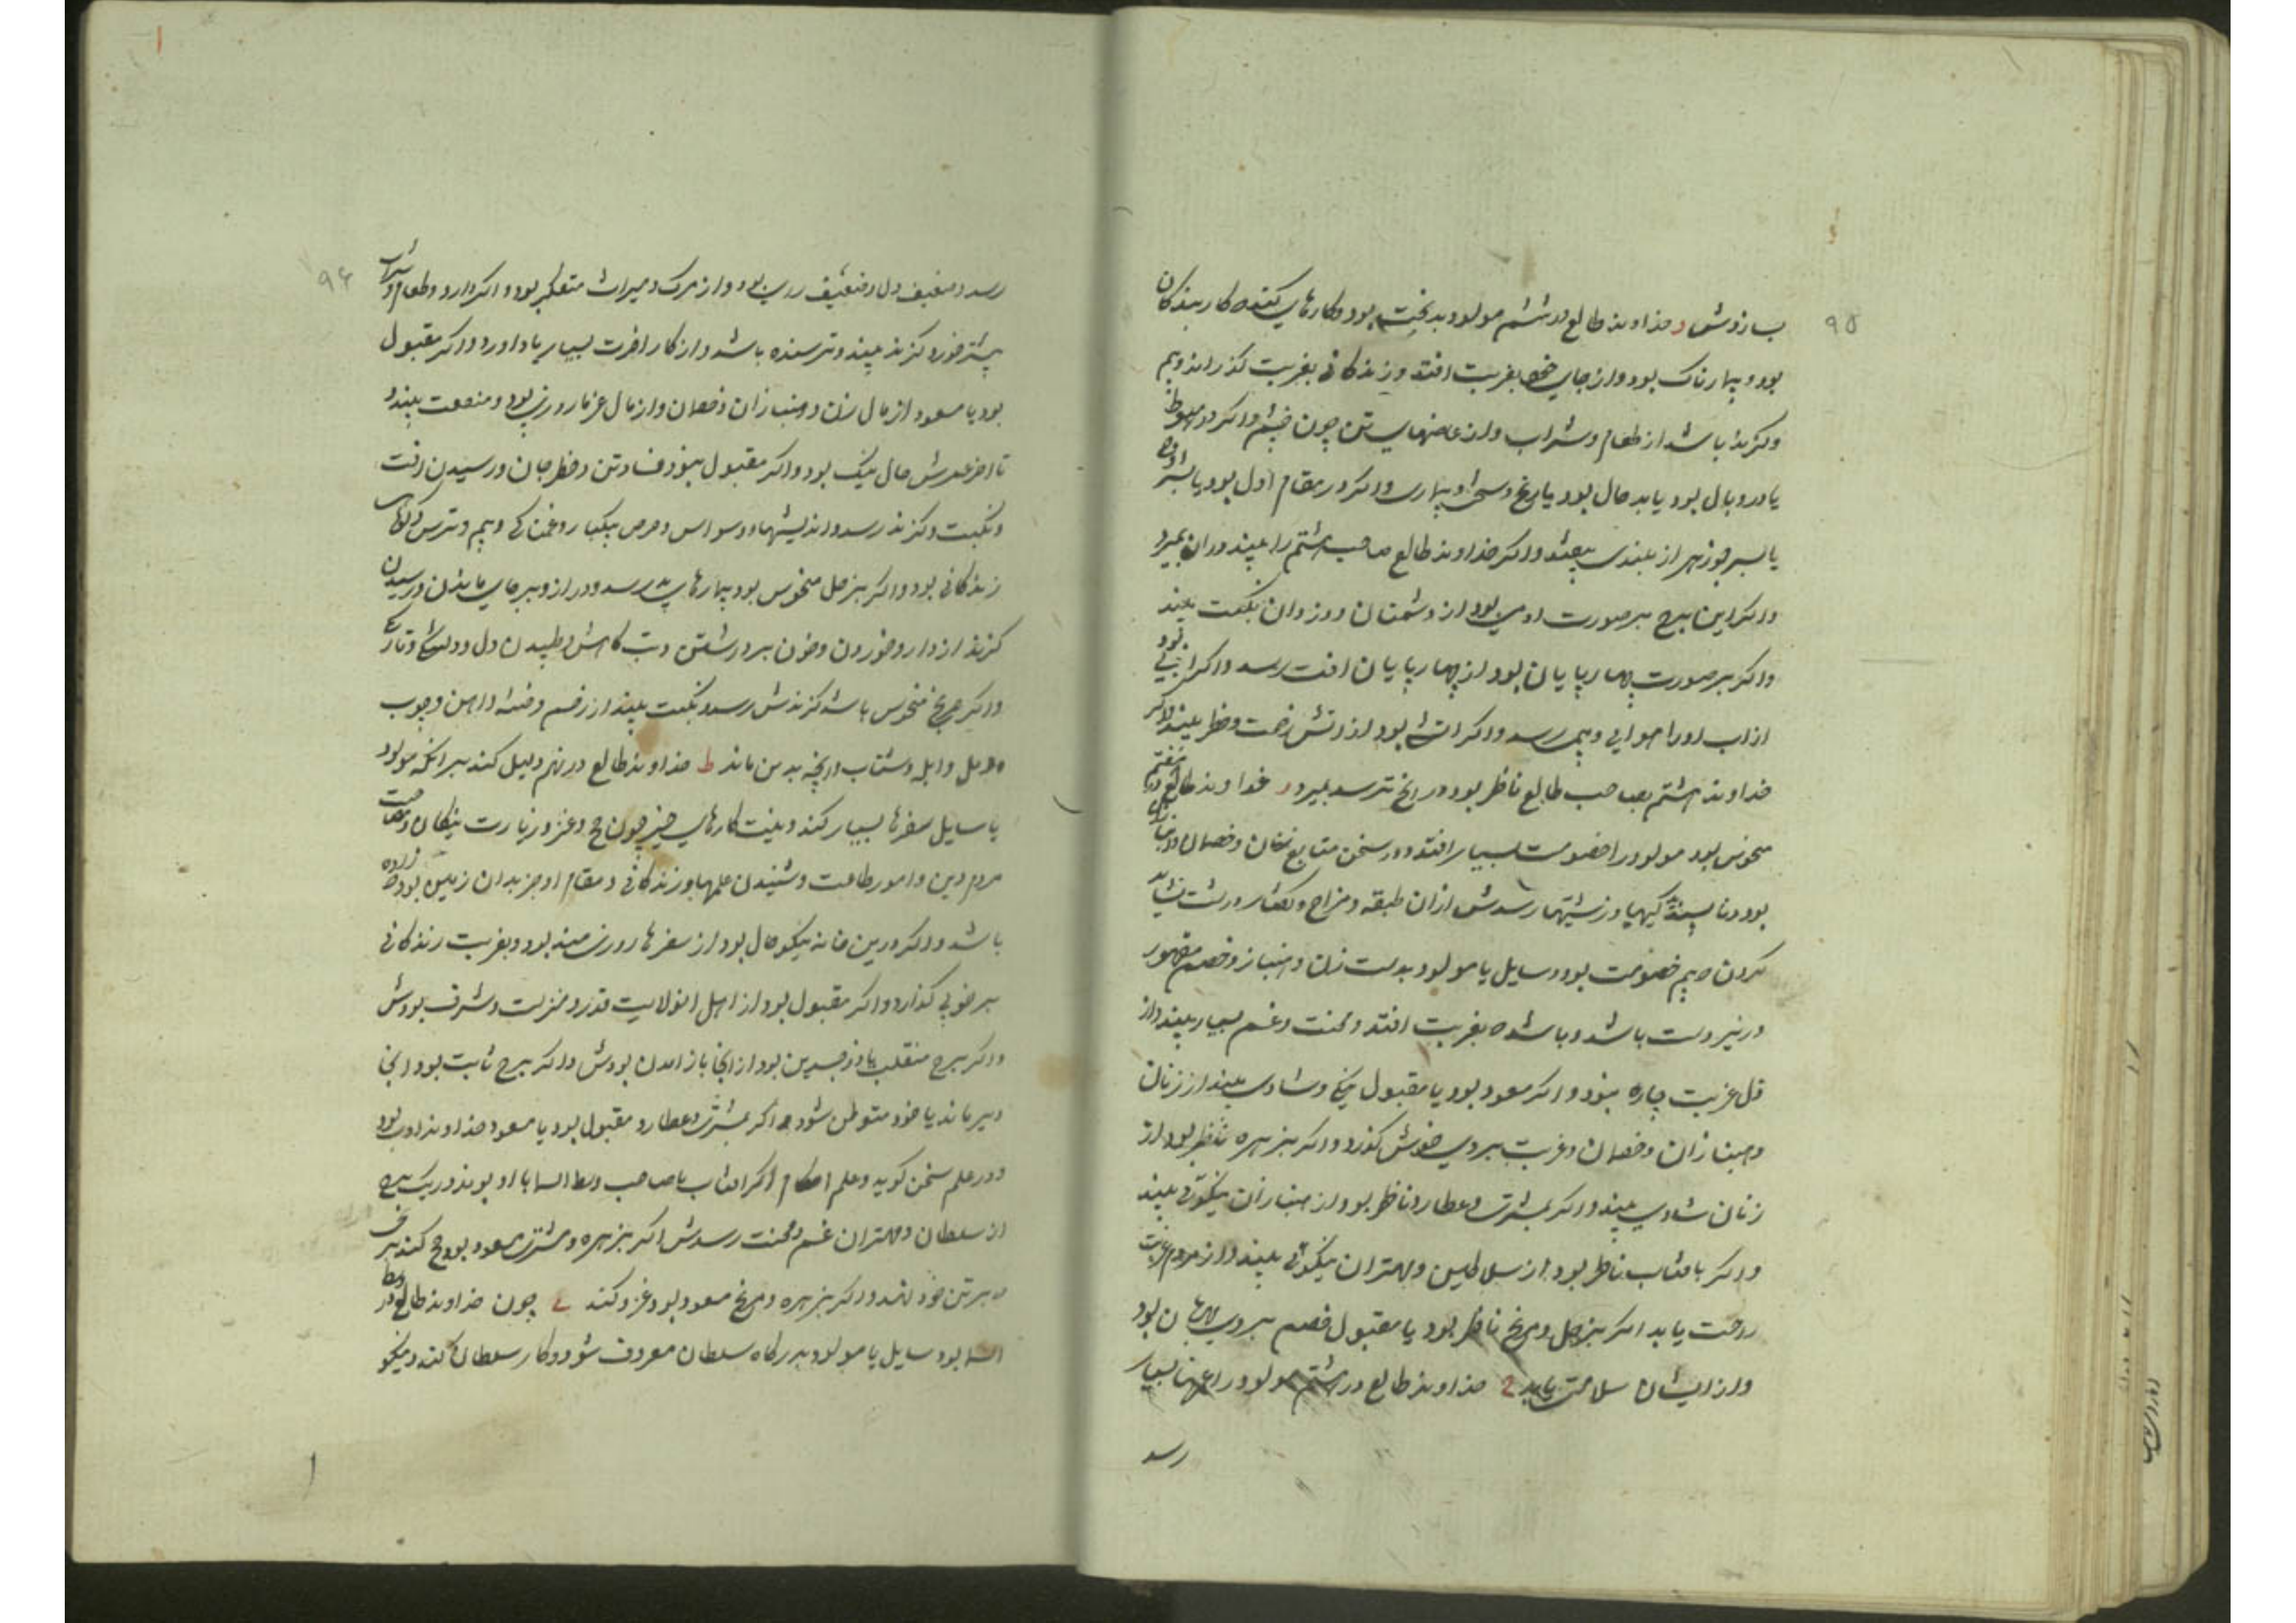 ۹۵
بازوش و خداوند طالع در ششم مولود بدبخت بود و کارهای کننده کار بندکان
بود و بیمارناک بود و از جای خود بغربت افتد و زندکانی بغربت کذراند و بیم
و کزند باشد از طعام و شراب و از عاضهای تن چون چشم و اکر در هبوط
یا در وبال بود یا بدحال بود یا رنج و سختی و بیماری و اکر در مقام اول بود یا بشرف
یا بسر جوزهر از بلندی بیفتد و اکر خداوند طالع صاحب هشتم را بیند در ان بمیرد
و اکر این برج بر صورت ادمی بود از دشمنان و دزدان نکبت بیند
و اکر بر صورت چهارپایان بود از چهارپایان افت رسد و اکر ابی بود
از اب او را هوایی و بیم رسد و اکر اتشی بود از اتش زحمت و خطر بیند و اکر
خداوند هشتم بصاحب طالع ناظر بود در رنج ترسد بمیرد ز خداوند طالع در هفتم
منحوس بود مولود را خصومت بسیار افتد و در سخن متابع زنان و خصمان و انبازان
بود و ناپسندکیها و زشتیها رسدش ازان طبقه و مزاج و کفتار درشت نشاید
کردن که بیم خصومت بود و سایل یا مولود بدست زن و انباز و خصم مقهور
و زیردست باشد و باشد که بغربت افتد و محنت و غم بسیار بیند و از
ذل غربت چاره نبود و اکر مسعود بود یا مقبول نیکی و شادی بیند از زنان
و هنبازان و خصمان و غربت بروی خوش کذرد و اکر بزهره ناظر بود از
زنان شادی بیند و اکر بمشتری و عطارد ناظر بود از هنبازان نیکوئی بیند
و اکر بافتاب ناظر بود از سلاطین و مهتران نیکوئی بیند و از مردم غریب
راحت یابد اکر بزحل و مریخ ناظر بود یا مقبول خصم بروی مهربان بود
و از ایشان سلامتی یابد ح خداوند طالع در هشتم مولود را غمها بسیار
رسد
۹۶
رسد و ضعیف دل و ضعیف رای بود و از مرک و میراث متفکر بود و اکر دارو و طعام و شراب
بیشتر خورد کزند بیند و ترسنده باشد و از کار اخرت بسیار یاد اورد و اکر مقبول
بود یا مسعود از مال زن و هنبازان و خصمان و از مال غرما روزی بود و منفعت بیند و
تا اخر عمرش حال نیک بود و اکر مقبول نبود فساد تن و خطر جان و رسیدن افت
و نکبت و کزند رسد و اندیشها و وسواس و حرص بیکبار و غمناکی و بیم و ترس و کوتاهی
زندکانی بود و اکر بزحل منحوس بود بیمارهای بد رسد و دراز و بیر جای ماندن و رسیدن
کزند از دارو خوردن و خون بر درشتن و تب کاهش و طپیدن دل و دلتنکی و تاریکی
و اکر بمریخ منحوس باشد کزندش رسد و نکبت بیند از زخم و فتنه و اهن و چوب
و دمل و ابله و شتاب و انچه بدین ماند ط خداوند طالع در نهم دلیل کند بر انکه مولود
یا سایل سفرها بسیار کند و بنیت کارهای خیر چون حج و غزو و زیارت نیکان و مصاحبت
مردم دین و امور طاعت و شنیدن علمها و زندکانی و مقام او جز بدان زمین بود که زاده
باشد و اکر درین خانه نیکو حال بود از سفرها روزی مند بود و بغربت زندکانی
بر خوبی کذارد و اکر مقبول بود از اهل ان ولایت قدر و منزلت و شرف بودش
و اکر برج منقلب یا ذوجسدین بود از انجا باز امدن بودش و اکر برج ثابت بود انجا
دیر ماند یا خود متوطن شود و اکر بمشتری و عطارد مقبول بود یا مسعود خداوند ادب بود
و در علم سخن کوید و علم احکام اکر افتاب یا صاحب وسط السما با او بوند در یک برج
از سلطان و مهتران غم و محنت رسدش اکر بزهره و مشتری مسعود بود حج کند
بر تن خود نهد و اکر بزهره و مریخ مسعود بود غزو کند ی چون خداوند طالع در وسط
السما بود سایل یا مولود بدرکاه سلطان معروف شود و کار سلطان کند و نیکو